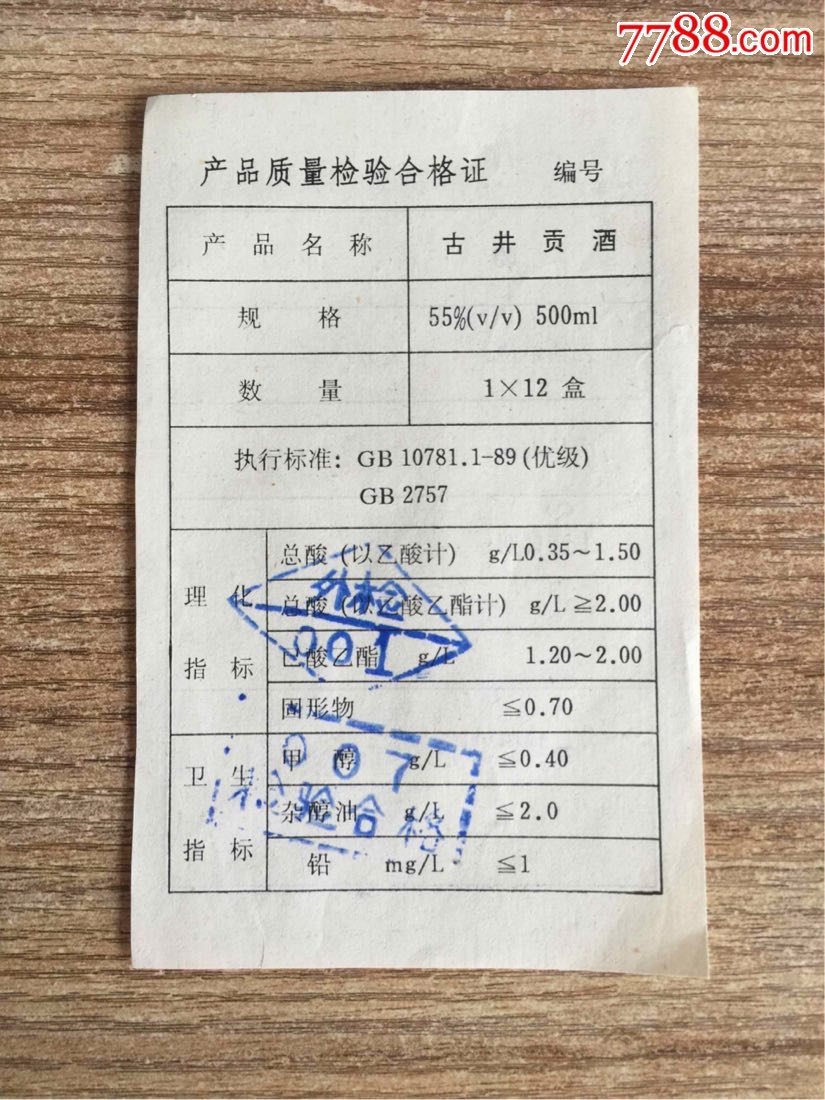 7788.com
产品质量检验合格证 编号
产品名称 古井贡酒
规格 55%(v/v) 500ml
数量 1×12 盒
执行标准: GB 10781.1-89 (优级)
GB 2757
理化指标
总酸 (以乙酸计) g/L 0.35~1.50
总酸 (以乙酸乙酯计) g/L ≧2.00
己酸乙酯 g/L 1.20~2.00
固形物 ≦0.70
卫生指标
甲醇 g/L ≦0.40
杂醇油 g/L ≦2.0
铅 mg/L ≦1
外检
001
007
检验合格